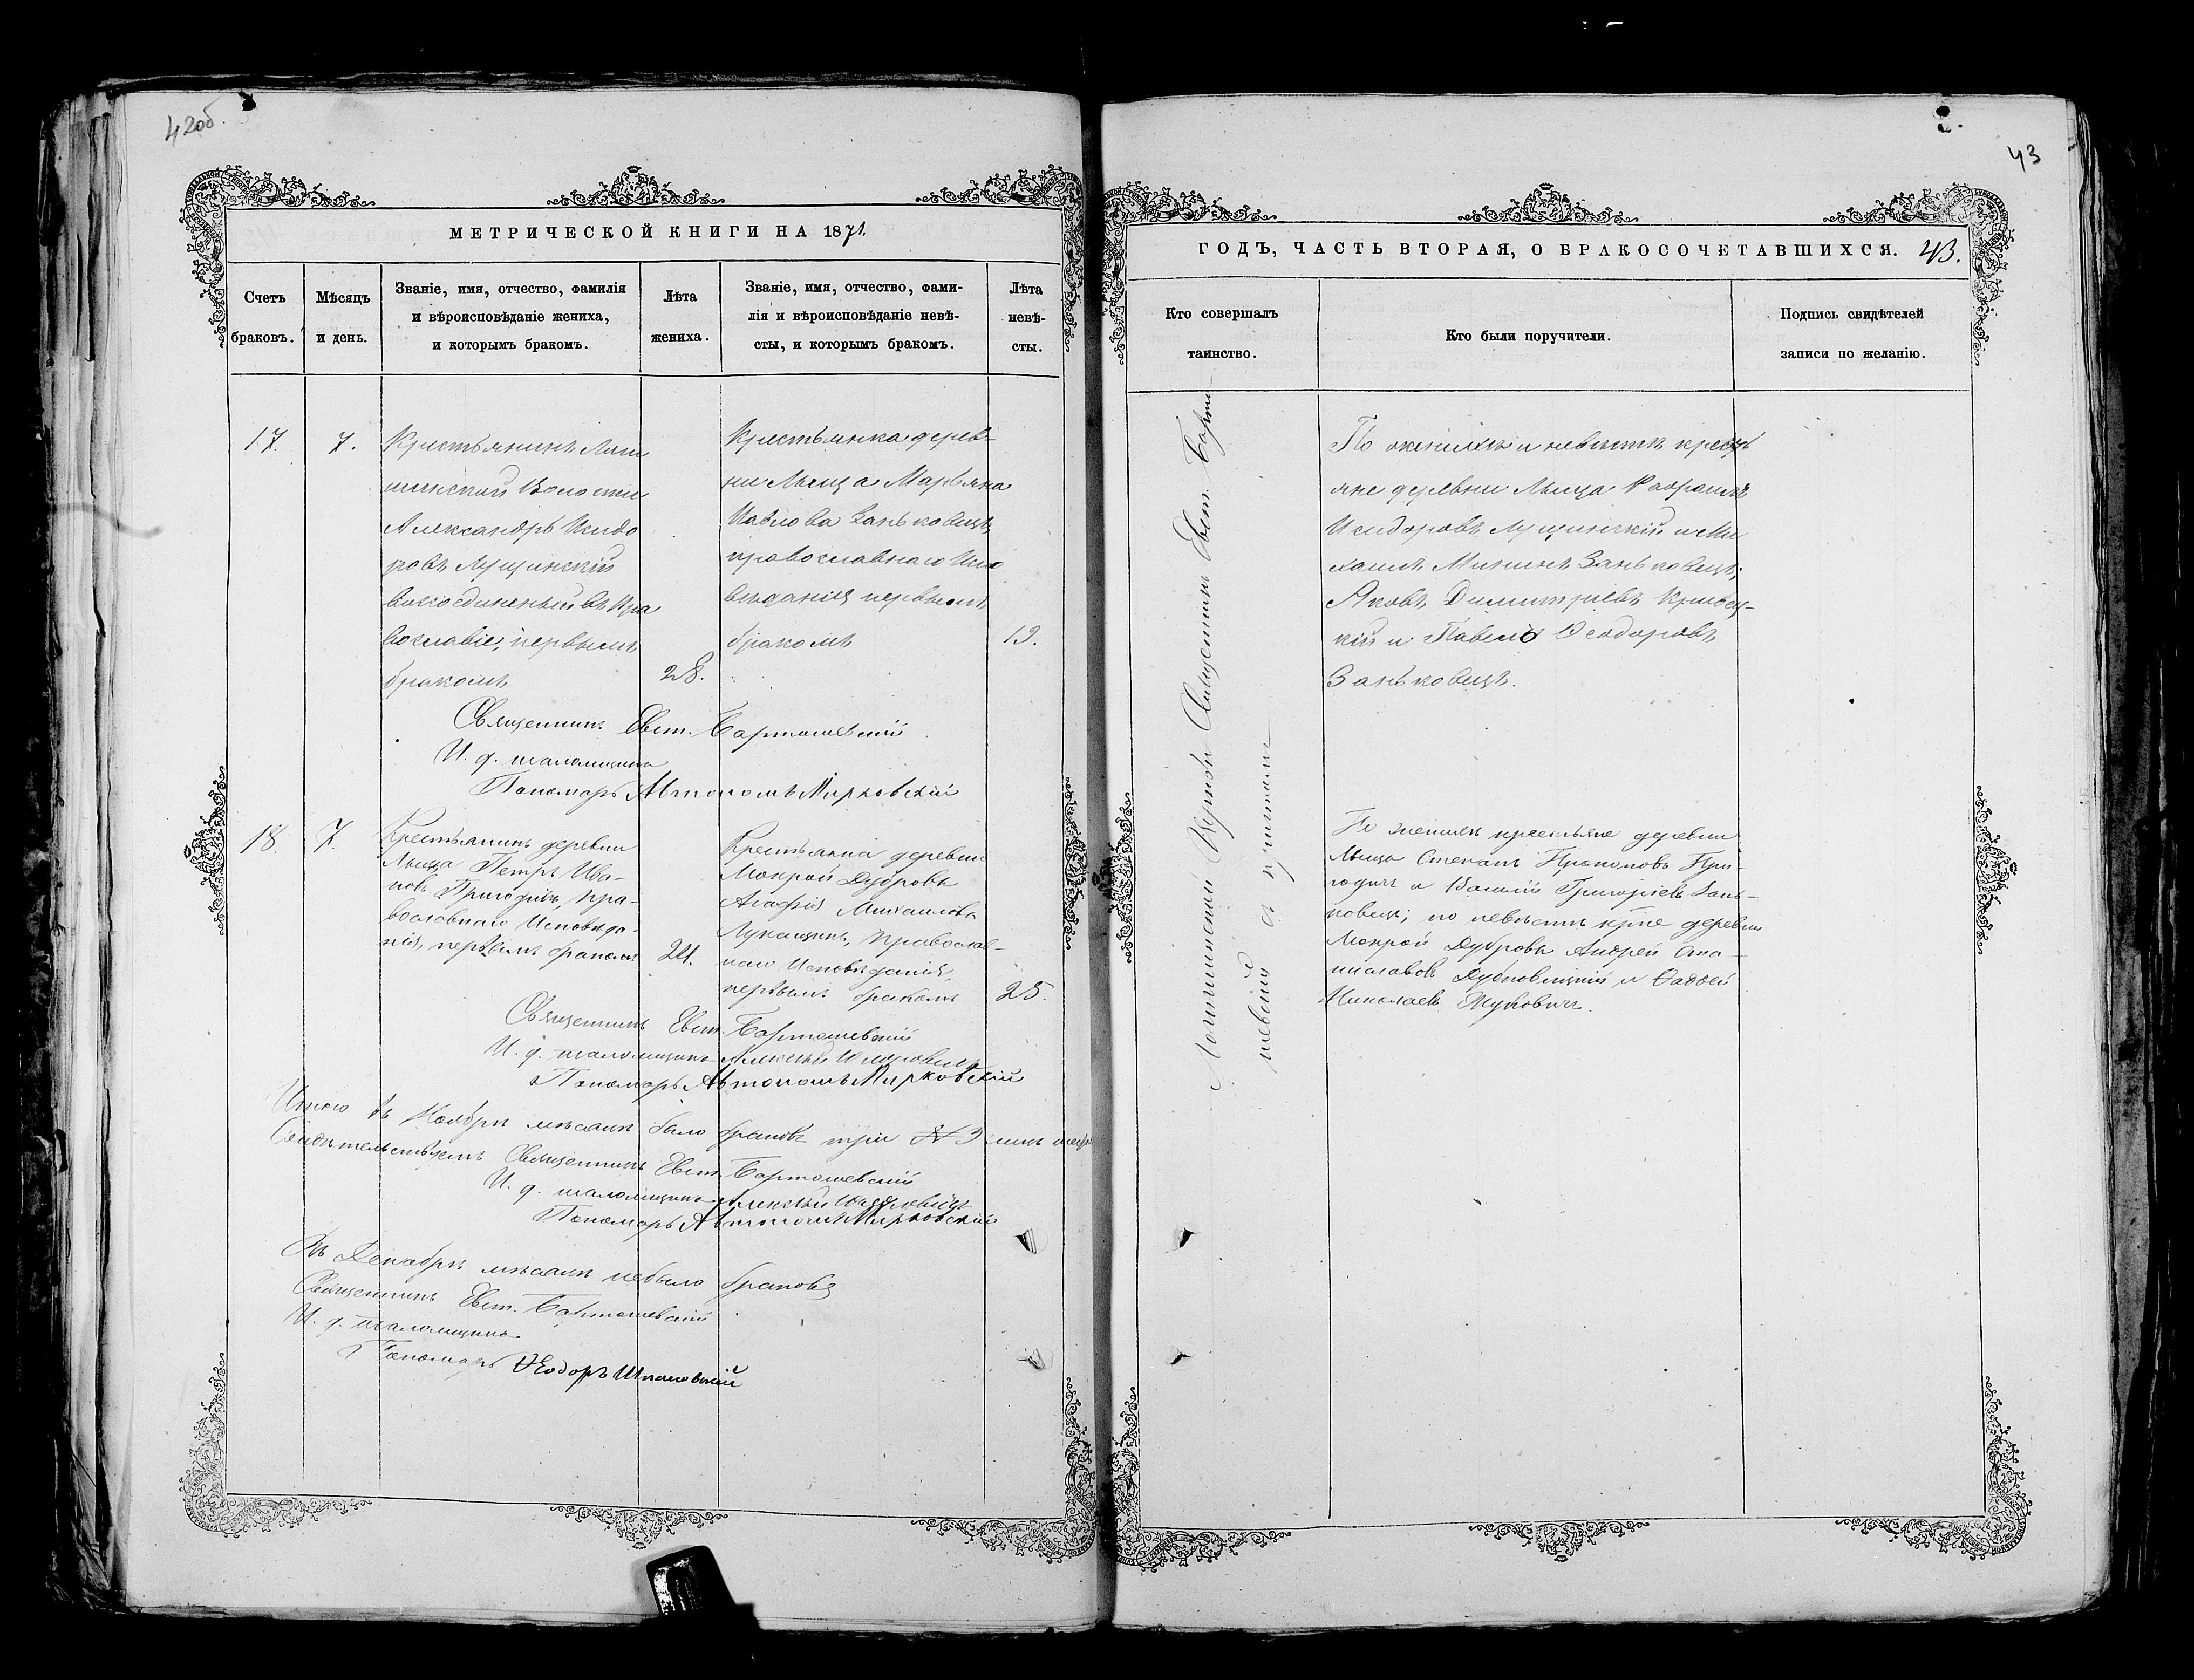 42об.
МЕТРИЧЕСКОЙ КНИГИ НА 1871.
Счетъ браковъ.
Мѣсяцъ и день.
Званіе, имя, отчество, фамилія
и вѣроисповѣданіе жениха,
и которымъ бракомъ.
Лѣта жениха.
Званіе, имя, отчество, фами-
лія и вѣроисповѣданіе невѣ-
сты, и которымъ бракомъ.
Лѣта невѣ-
сты.
17.
7.
Крестьянинъ
Волости
Александръ Исидо
ровъ Лущинскій
возсоединеный въ Пра
вославіе, первымъ
бракомъ
28.
Крестьянка дерев-
ни Лыща Марьяна
Павлова Заньковецъ,
православнаго Испо
вѣданія первымъ
бракомъ
19.
Священникъ Евст. Бартошевскій
И. д. псаломщика
Пономарь Автономъ Мирковскій
18.
7.
Крестьянинъ деревни
Лыща Петръ Ива-
новъ Пригодичъ, пра-
вославнаго Исповѣда-
нія, первымъ бракомъ
24.
Крестьянка деревни
Мокрой Дубровы
Агафія Михаилова
Лукащикъ, православ-
наго Исповѣданія,
первымъ бракомъ
25.
Священникъ Евст. Бартошевскій
И. д. псаломщика Алексѣй
Пономарь Автономъ Мирковскій
Итого въ Ноябрѣ мѣсяцѣ было браковъ три № 3
Свидѣтельствуемъ Священникъ Евст. Бартошевскій
И. д. псаломщика Алексѣй
Пономарь Автономъ Мирковскій
Въ Декабрѣ мѣсяцѣ небыло браковъ
Священникъ Евст. Бартошевскій
И. д. псаломщика
Пономарь Ѳеодоръ Шпаковскій
43
ГОДЪ, ЧАСТЬ ВТОРАЯ, О БРАКОСОЧЕТАВШИХСЯ. 43.
Кто совершалъ
таинство.
Кто были поручители.
Подпись свидѣтелей
записи по желанію.
Логишинской Церкви Священникъ Евст. Барто
шевскій съ причтомъ
По женихѣ и невѣстѣ кресть
яне деревни Лыща
Исидоровъ Лущинскій и Ми
хаилъ Мининъ Заньковецъ;
Яковъ Димитріевъ Кривец-
кій и Павелъ Ѳеодоровъ
Заньковецъ.
По женихѣ крестьяне деревни
Лыща Степанъ Прокоповъ При-
годичъ и Василій Григоріевъ Зань-
ковецъ; по невѣстѣ кр̃не деревни
Мокрой Дубровы Андрей Ста-
ниславовъ Дубновицкій и Ѳаддей
Николаевъ Жуковичъ.